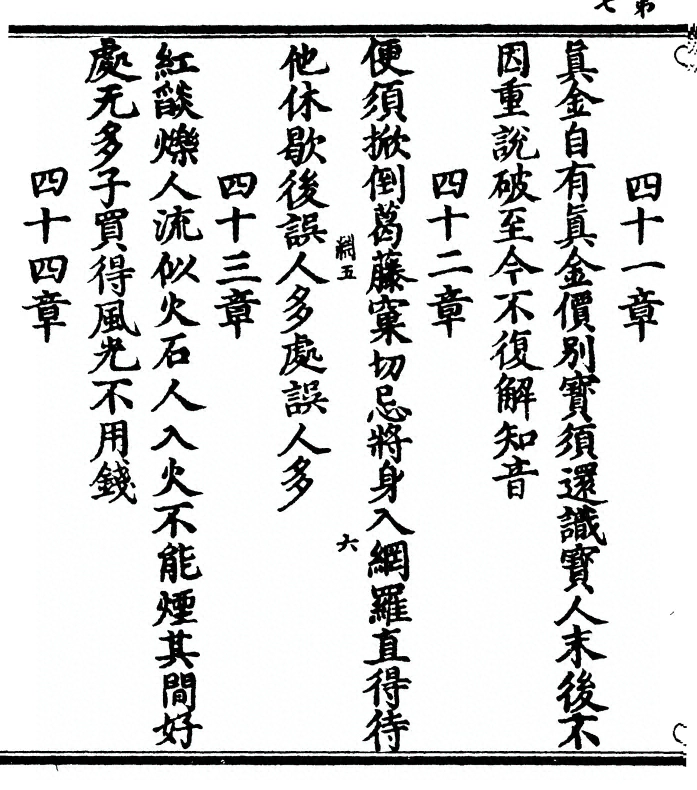 四十一章
眞金自有眞金價別寳須還識寳人末後不
因重說破至今不復解知音
四十二章
便須掀倒葛藤窠切忌將身入網羅直得待
他休歇後誤人多處誤人多
四十三章
紅燄爍人流似火石人入火不能煙其間好
處无多子買得風光不用錢
四十四章
五
六